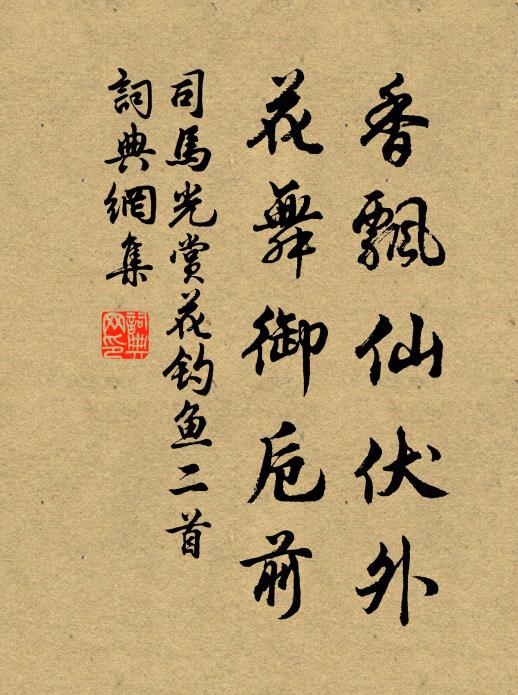 香飄仙伏外
花舞御卮前
司馬光賞花釣魚二首
詞典網集
詞典网印